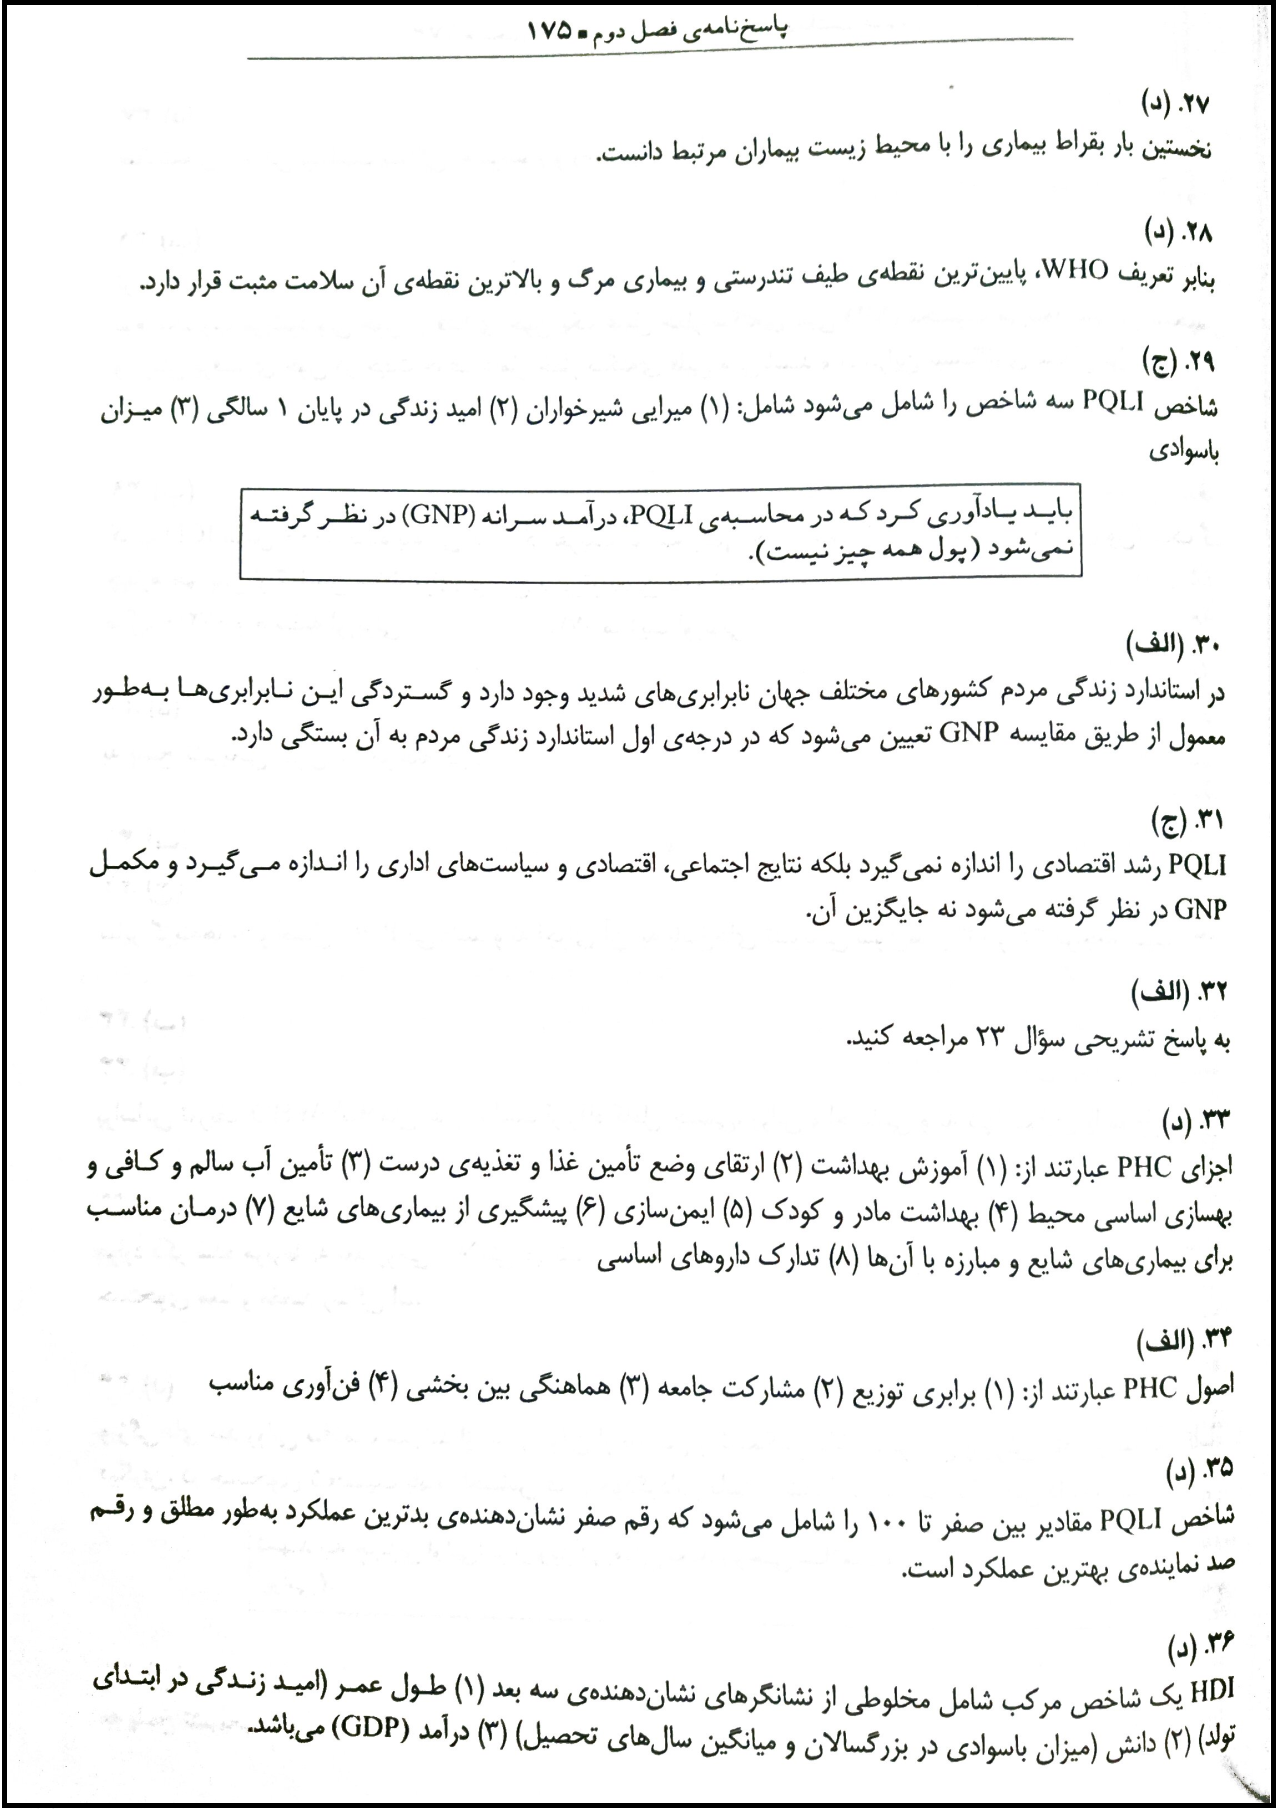 پاسخ‌نامه‌ی فصل دوم ■ ۱۷۵
۲۷. (د)
نخستین بار بقراط بیماری را با محیط زیست بیماران مرتبط دانست.
۲۸. (د)
بنابر تعریف WHO، پایین‌ترین نقطه‌ی طیف تندرستی و بیماری مرگ و بالاترین نقطه‌ی آن سلامت مثبت قرار دارد.
۲۹. (ج)
شاخص PQLI سه شاخص را شامل می‌شود شامل: (۱) میرایی شیرخواران (۲) امید زندگی در پایان ۱ سالگی (۳) میزان
باسوادی
باید یادآوری کرد که در محاسبه‌ی PQLI، درآمد سرانه (GNP) در نظر گرفته
نمی‌شود (پول همه چیز نیست).
۳۰. (الف)
در استاندارد زندگی مردم کشورهای مختلف جهان نابرابری‌های شدید وجود دارد و گستردگی این نابرابری‌ها به‌طور
معمول از طریق مقایسه GNP تعیین می‌شود که در درجه‌ی اول استاندارد زندگی مردم به آن بستگی دارد.
۳۱. (ج)
PQLI رشد اقتصادی را اندازه نمی‌گیرد بلکه نتایج اجتماعی، اقتصادی و سیاست‌های اداری را اندازه می‌گیرد و مکمل
GNP در نظر گرفته می‌شود نه جایگزین آن.
۳۲. (الف)
به پاسخ تشریحی سؤال ۲۳ مراجعه کنید.
۳۳. (د)
اجزای PHC عبارتند از: (۱) آموزش بهداشت (۲) ارتقای وضع تأمین غذا و تغذیه‌ی درست (۳) تأمین آب سالم و کافی و
بهسازی اساسی محیط (۴) بهداشت مادر و کودک (۵) ایمن‌سازی (۶) پیشگیری از بیماری‌های شایع (۷) درمان مناسب
برای بیماری‌های شایع و مبارزه با آن‌ها (۸) تدارک داروهای اساسی
۳۴. (الف)
اصول PHC عبارتند از: (۱) برابری توزیع (۲) مشارکت جامعه (۳) هماهنگی بین بخشی (۴) فن‌آوری مناسب
۳۵. (د)
شاخص PQLI مقادیر بین صفر تا ۱۰۰ را شامل می‌شود که رقم صفر نشان‌دهنده‌ی بدترین عملکرد به‌طور مطلق و رقم
صد نماینده‌ی بهترین عملکرد است.
۳۶. (د)
HDI یک شاخص مرکب شامل مخلوطی از نشانگرهای نشان‌دهنده‌ی سه بعد (۱) طول عمر (امید زندگی در ابتدای
تولد) (۲) دانش (میزان باسوادی در بزرگسالان و میانگین سال‌های تحصیل) (۳) درآمد (GDP) می‌باشد.